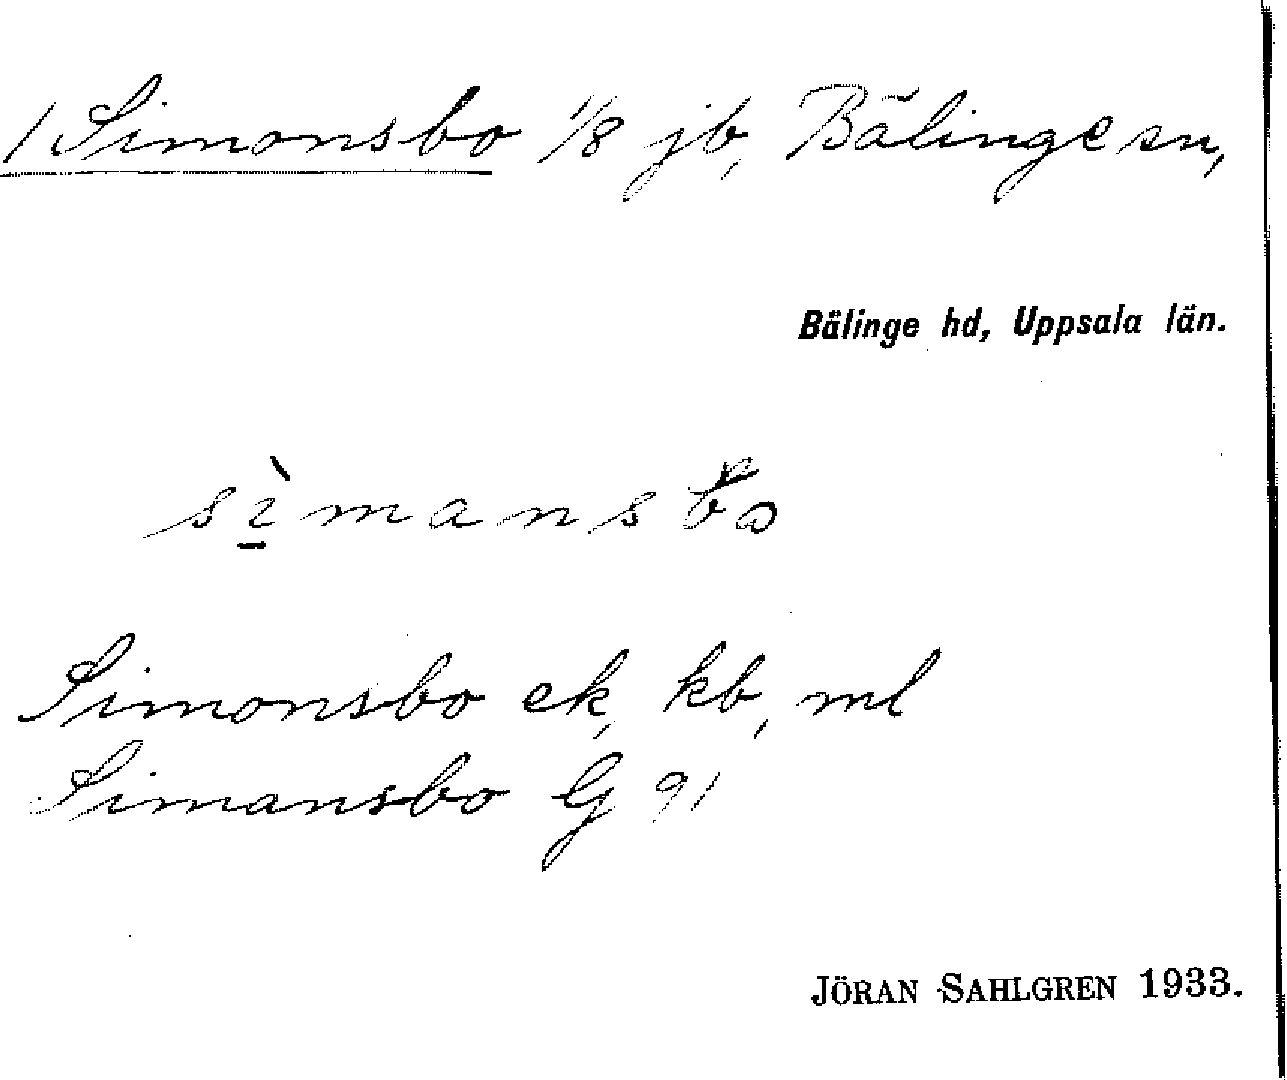 1 Simonsbo 1/8 jb, Bälinge sn,
Bälinge hd, Uppsala län.
Simonsbo ek, kb, ml
Simansbo G 91
JÖRAN SAHLGREN 1933.